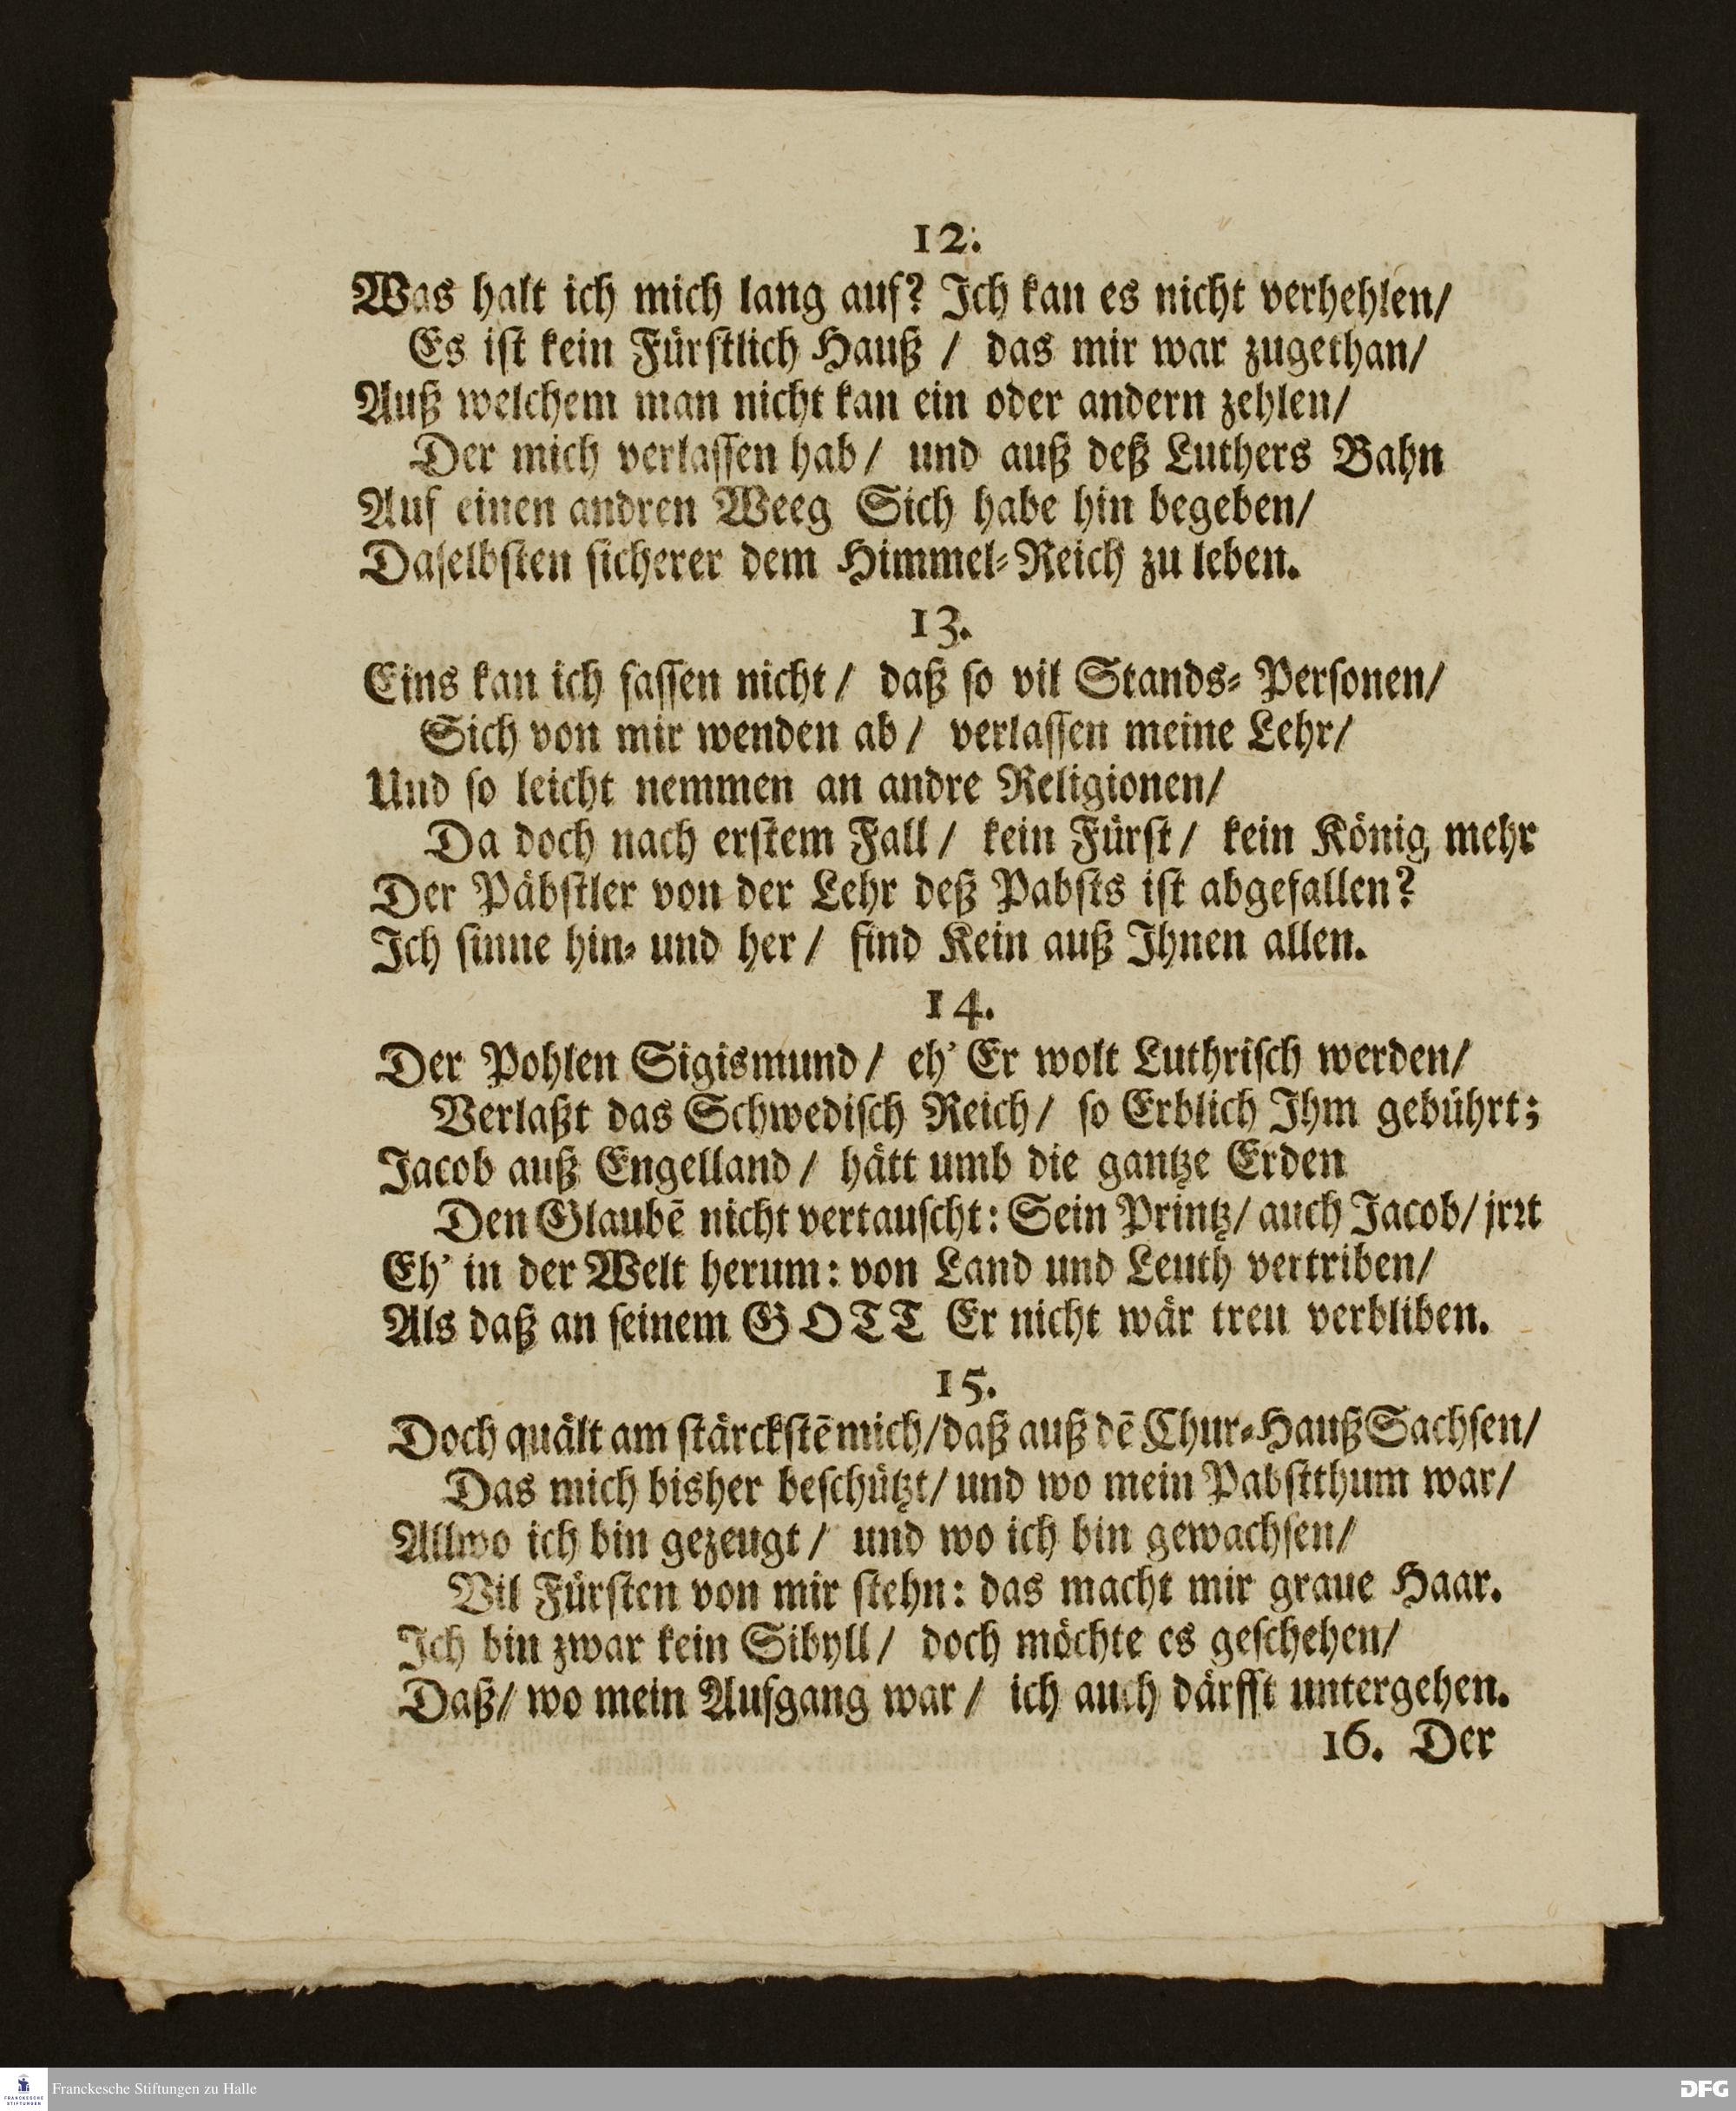 12.
Was halt ich mich lang auf? Ich kan es nicht verhehlen/
Es ist kein Fürstlich Hauß / das mir war zugethan/
Auß welchem man nicht kan ein oder andern zehlen/
Der mich verlassen hab / und auß deß Luthers Bahn
Auf einen andren Weeg Sich habe hin begeben/
Daselbsten sicherer dem Himmel-Reich zu leben.
13.
Eins kan ich fassen nicht / daß so vil Stands-Personen/
Sich von mir wenden ab / verlassen meine Lehr/
Und so leicht nemmen an andre Religionen/
Da doch nach erstem Fall / kein Fürst / kein König mehr
Der Päbstler von der Lehr deß Pabsts ist abgefallen?
Ich sinne hin- und her / find Kein auß Ihnen allen.
14.
Der Pohlen Sigismund / eh' Er wolt Luthrisch werden/
Verlaßt das Schwedisch Reich / so Erblich Ihm gebührt;
Jacob auß Engelland / hätt umb die gantze Erden
Den Glaubē nicht vertauscht: Sein Printz / auch Jacob / jrꝛt
Eh' in der Welt herum: von Land und Leuth vertriben/
Als daß an seinem GOTT Er nicht wär treu verbliben.
15.
Doch quält am stärckstē mich / daß auß dē Chur-Hauß Sachsen/
Das mich bisher beschützt / und wo mein Pabstthum war/
Allwo ich bin gezeugt / und wo ich bin gewachsen/
Vil Fürsten von mir stehn: das macht mir graue Haar.
Ich bin zwar kein Sibyll / doch möchte es geschehen/
Daß / wo mein Aufgang war / ich auch därfft untergehen.
16. Der
Franckesche Stiftungen zu Halle
DFG